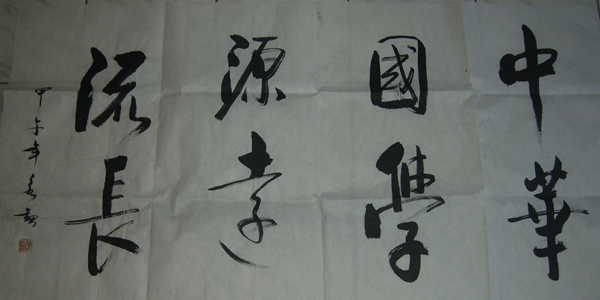 中華
國學
源遠
流長
甲午年